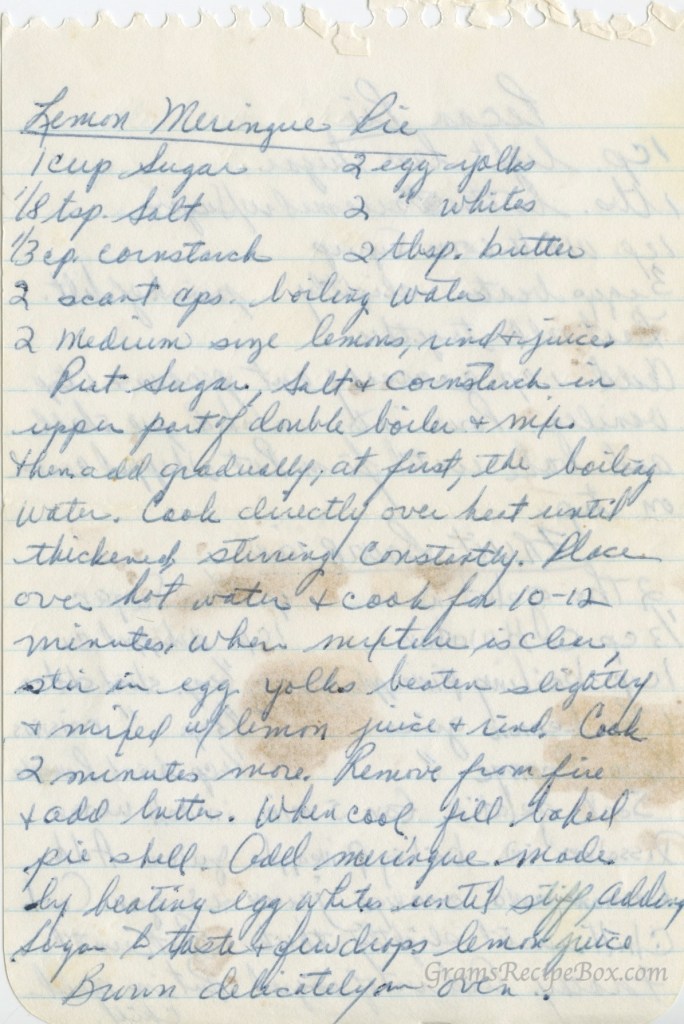 Lemon Meringue Pie
1 cup Sugar 2 egg yolks
1/8 tsp. Salt 2 " whites
1/3 cp. cornstarch 2 tbsp. butter
2 scant cps. boiling water
2 medium size lemons, rind + juice.
Put Sugar, Salt + Cornstarch in
upper part of double boiler + mix.
then add gradually, at first, the boiling
water. Cook directly over heat until
thickened stirring constantly. Place
over hot water + cook for 10-12
minutes. When mixture is clear,
stir in egg yolks beaten slightly
+ mixed w/ lemon juice + rind. Cook
2 minutes more. Remove from fire
+ add butter. When cool fill baked
pie shell. Add meringue made
by beating egg whites until stiff, adding
sugar to taste + few drops lemon juice
Brown delicately in oven.
GramsRecipeBox.com